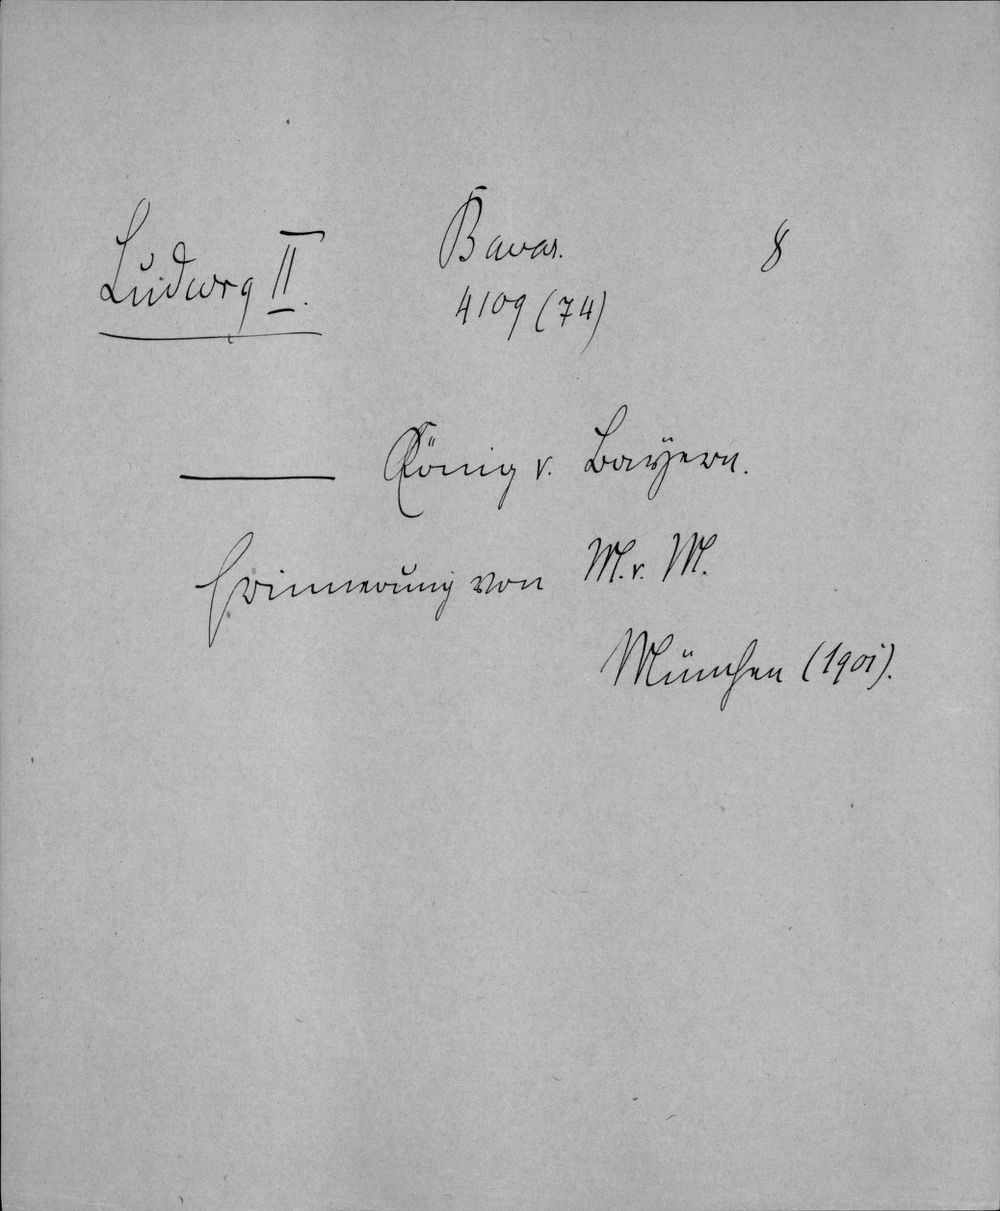 Ludwig II. Bavar. 8
4109 (74)
——— König v. Bayern.
Erinnerung von M. v. M.
München (1901).